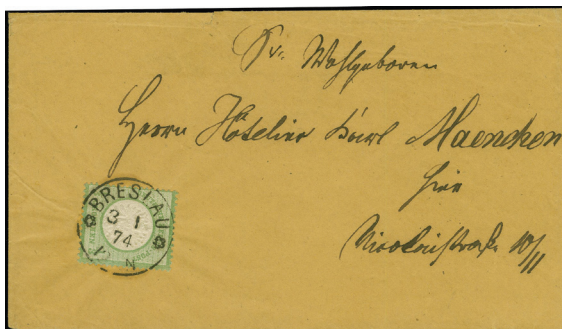 Sr. Wohlgeboren
Herrn Hôtelier Karl Maencken
hier
Nicolaistraße 10/11
BRESLAU
3 1
74
N